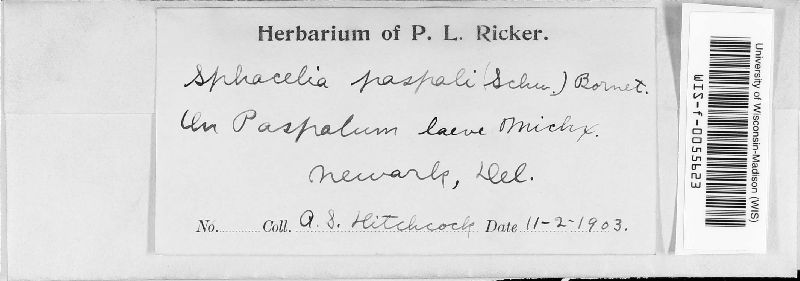 Herbarium of P. L. Ricker.
Sphacelia paspali (Schw.) Bornet.
On Paspalum laeve Michx.
Newark, Del.
No. Coll. A. S. Hitchcock Date 11-2-1903.
University of Wisconsin-Madison (WIS)
WIS-f-0055923